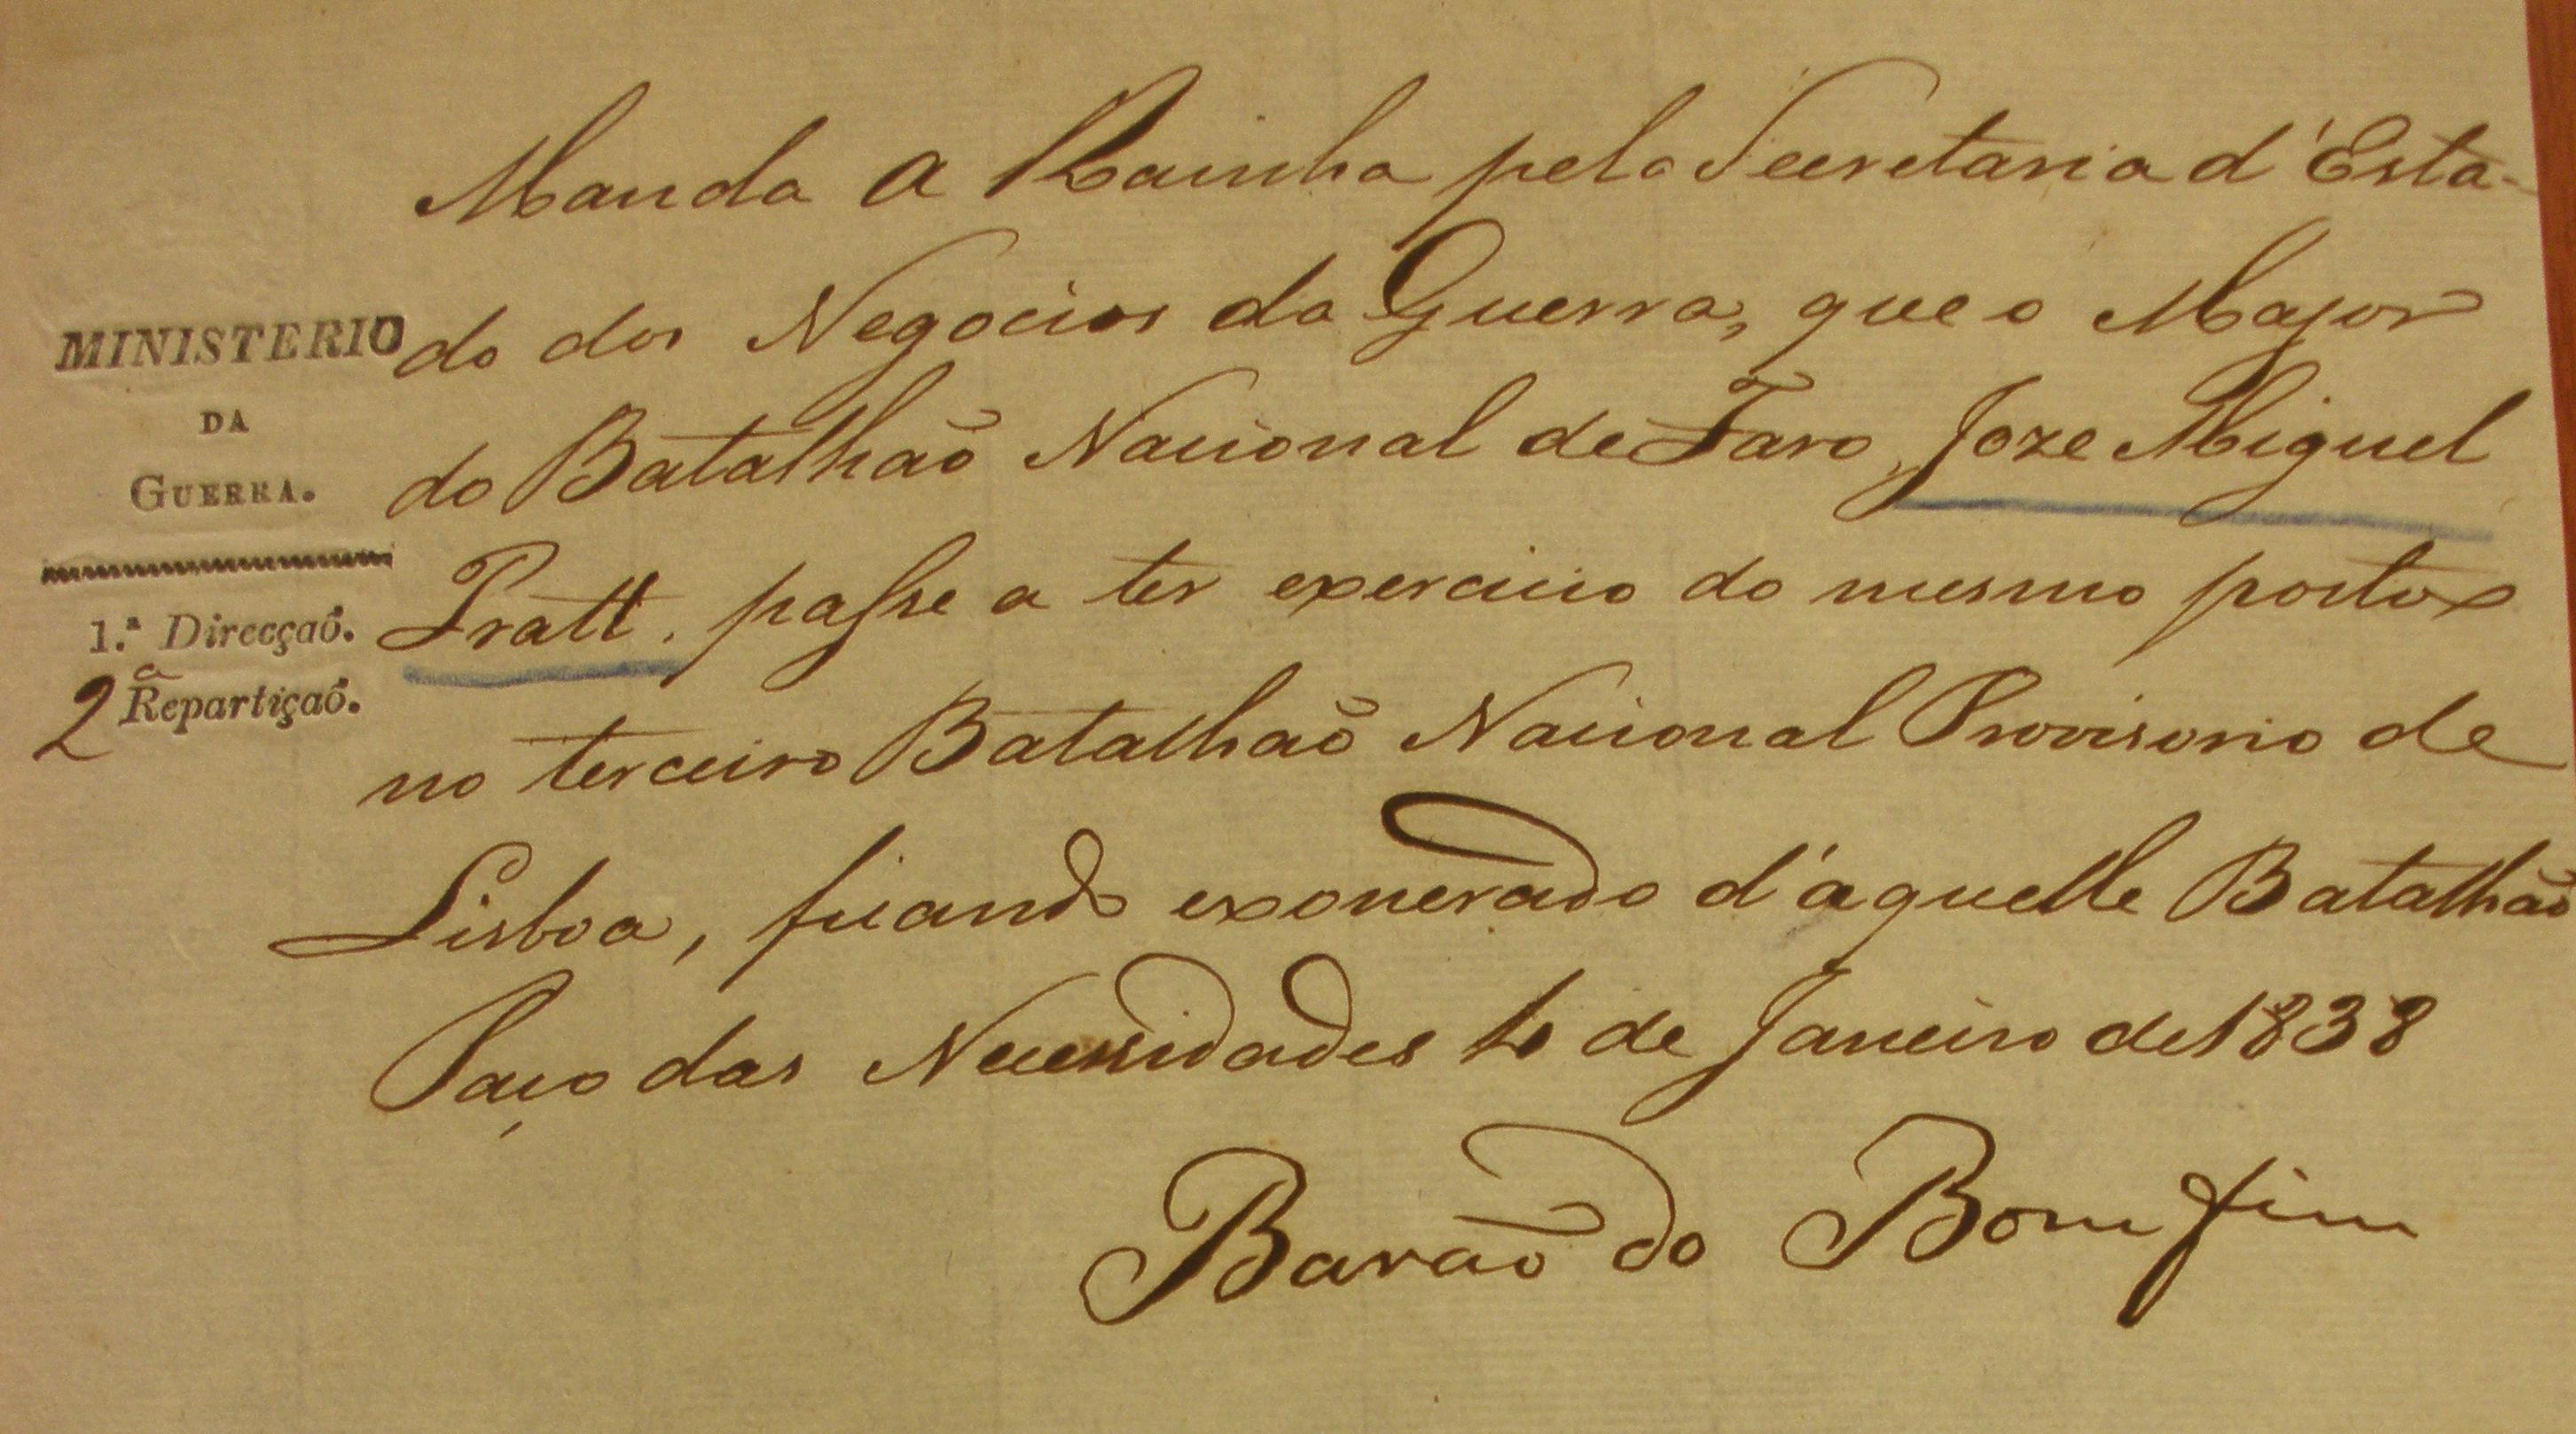 MINISTERIO
DA
GUERRA.
1.ª Direcçaõ.
2ª Repartiçaõ.
Manda a Rainha pela Secretaria d'Esta-
do dos Negocios da Guerra, que o Major
do Batalhaõ Nacional de Faro, Joze Miguel
Pratt. passe a ter exercicio do mesmo posto
no terceiro Batalhaõ Nacional Provisorio de
Lisboa, ficando exonerado d'aquelle Batalhaõ
Paço das Necessidades 4 de Janeiro de 1838
Baraõ do Bomfim